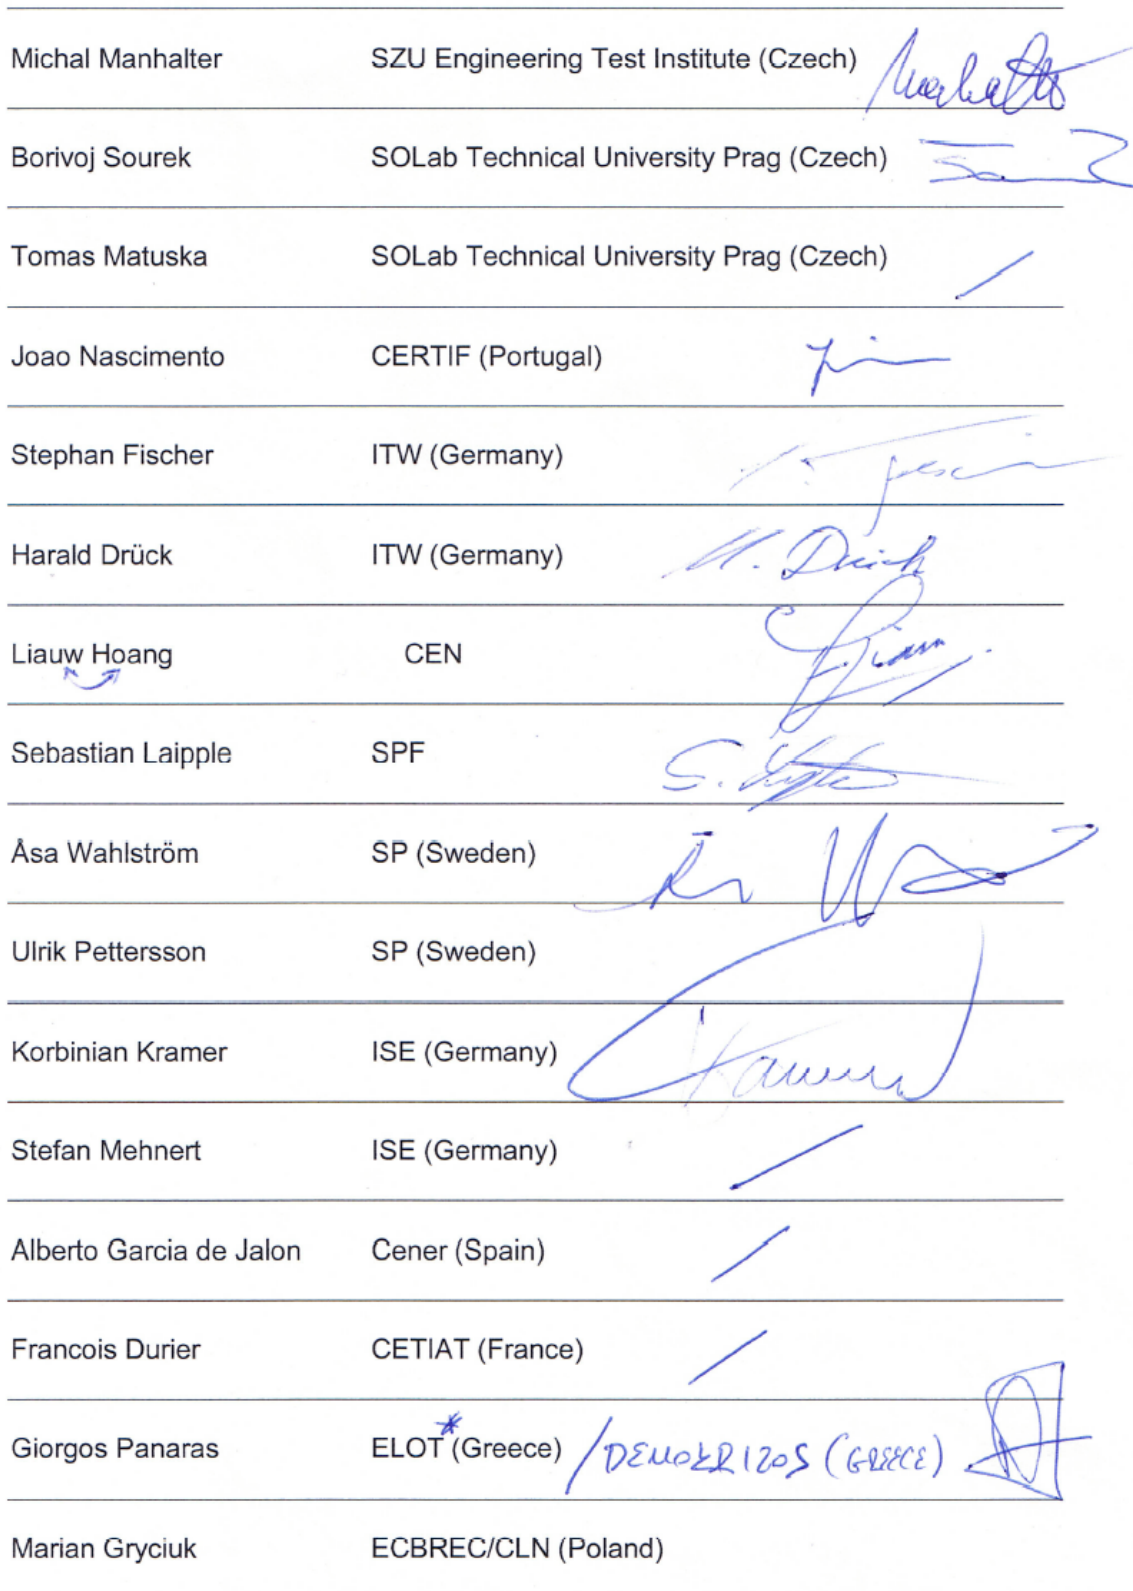 Michal Manhalter SZU Engineering Test Institute (Czech)
Borivoj Sourek SOLab Technical University Prag (Czech)
Tomas Matuska SOLab Technical University Prag (Czech)
Joao Nascimento CERTIF (Portugal)
Stephan Fischer ITW (Germany)
Harald Drück ITW (Germany) H. Drück
Liauw Hoang CEN
Sebastian Laipple SPF
Åsa Wahlström SP (Sweden)
Ulrik Pettersson SP (Sweden)
Korbinian Kramer ISE (Germany)
Stefan Mehnert ISE (Germany)
Alberto Garcia de Jalon Cener (Spain)
Francois Durier CETIAT (France)
Giorgos Panaras ELOT* (Greece) / (GREECE)
Marian Gryciuk ECBREC/CLN (Poland)